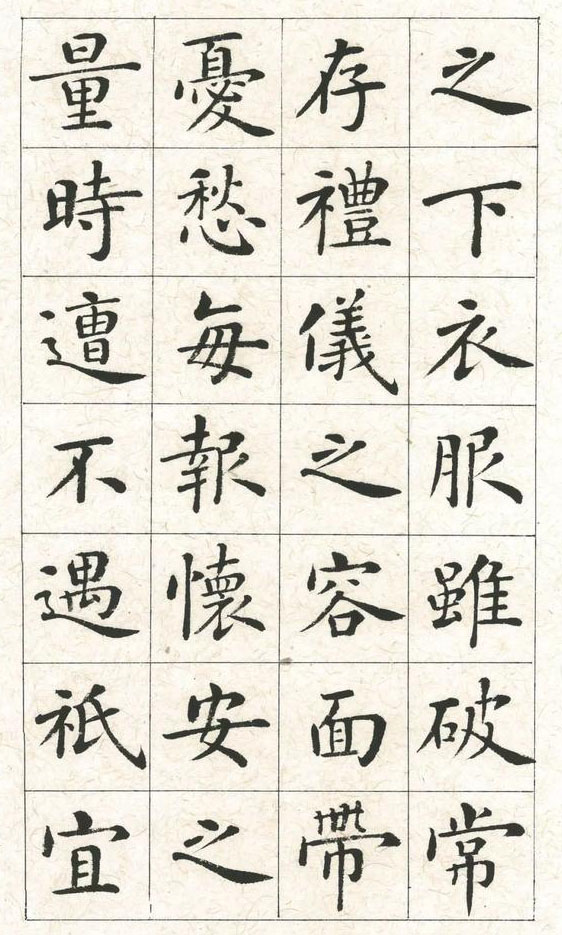 之下衣服雖破常
存禮儀之容面帶
憂愁每報懷安之
量時遭不遇祇宜